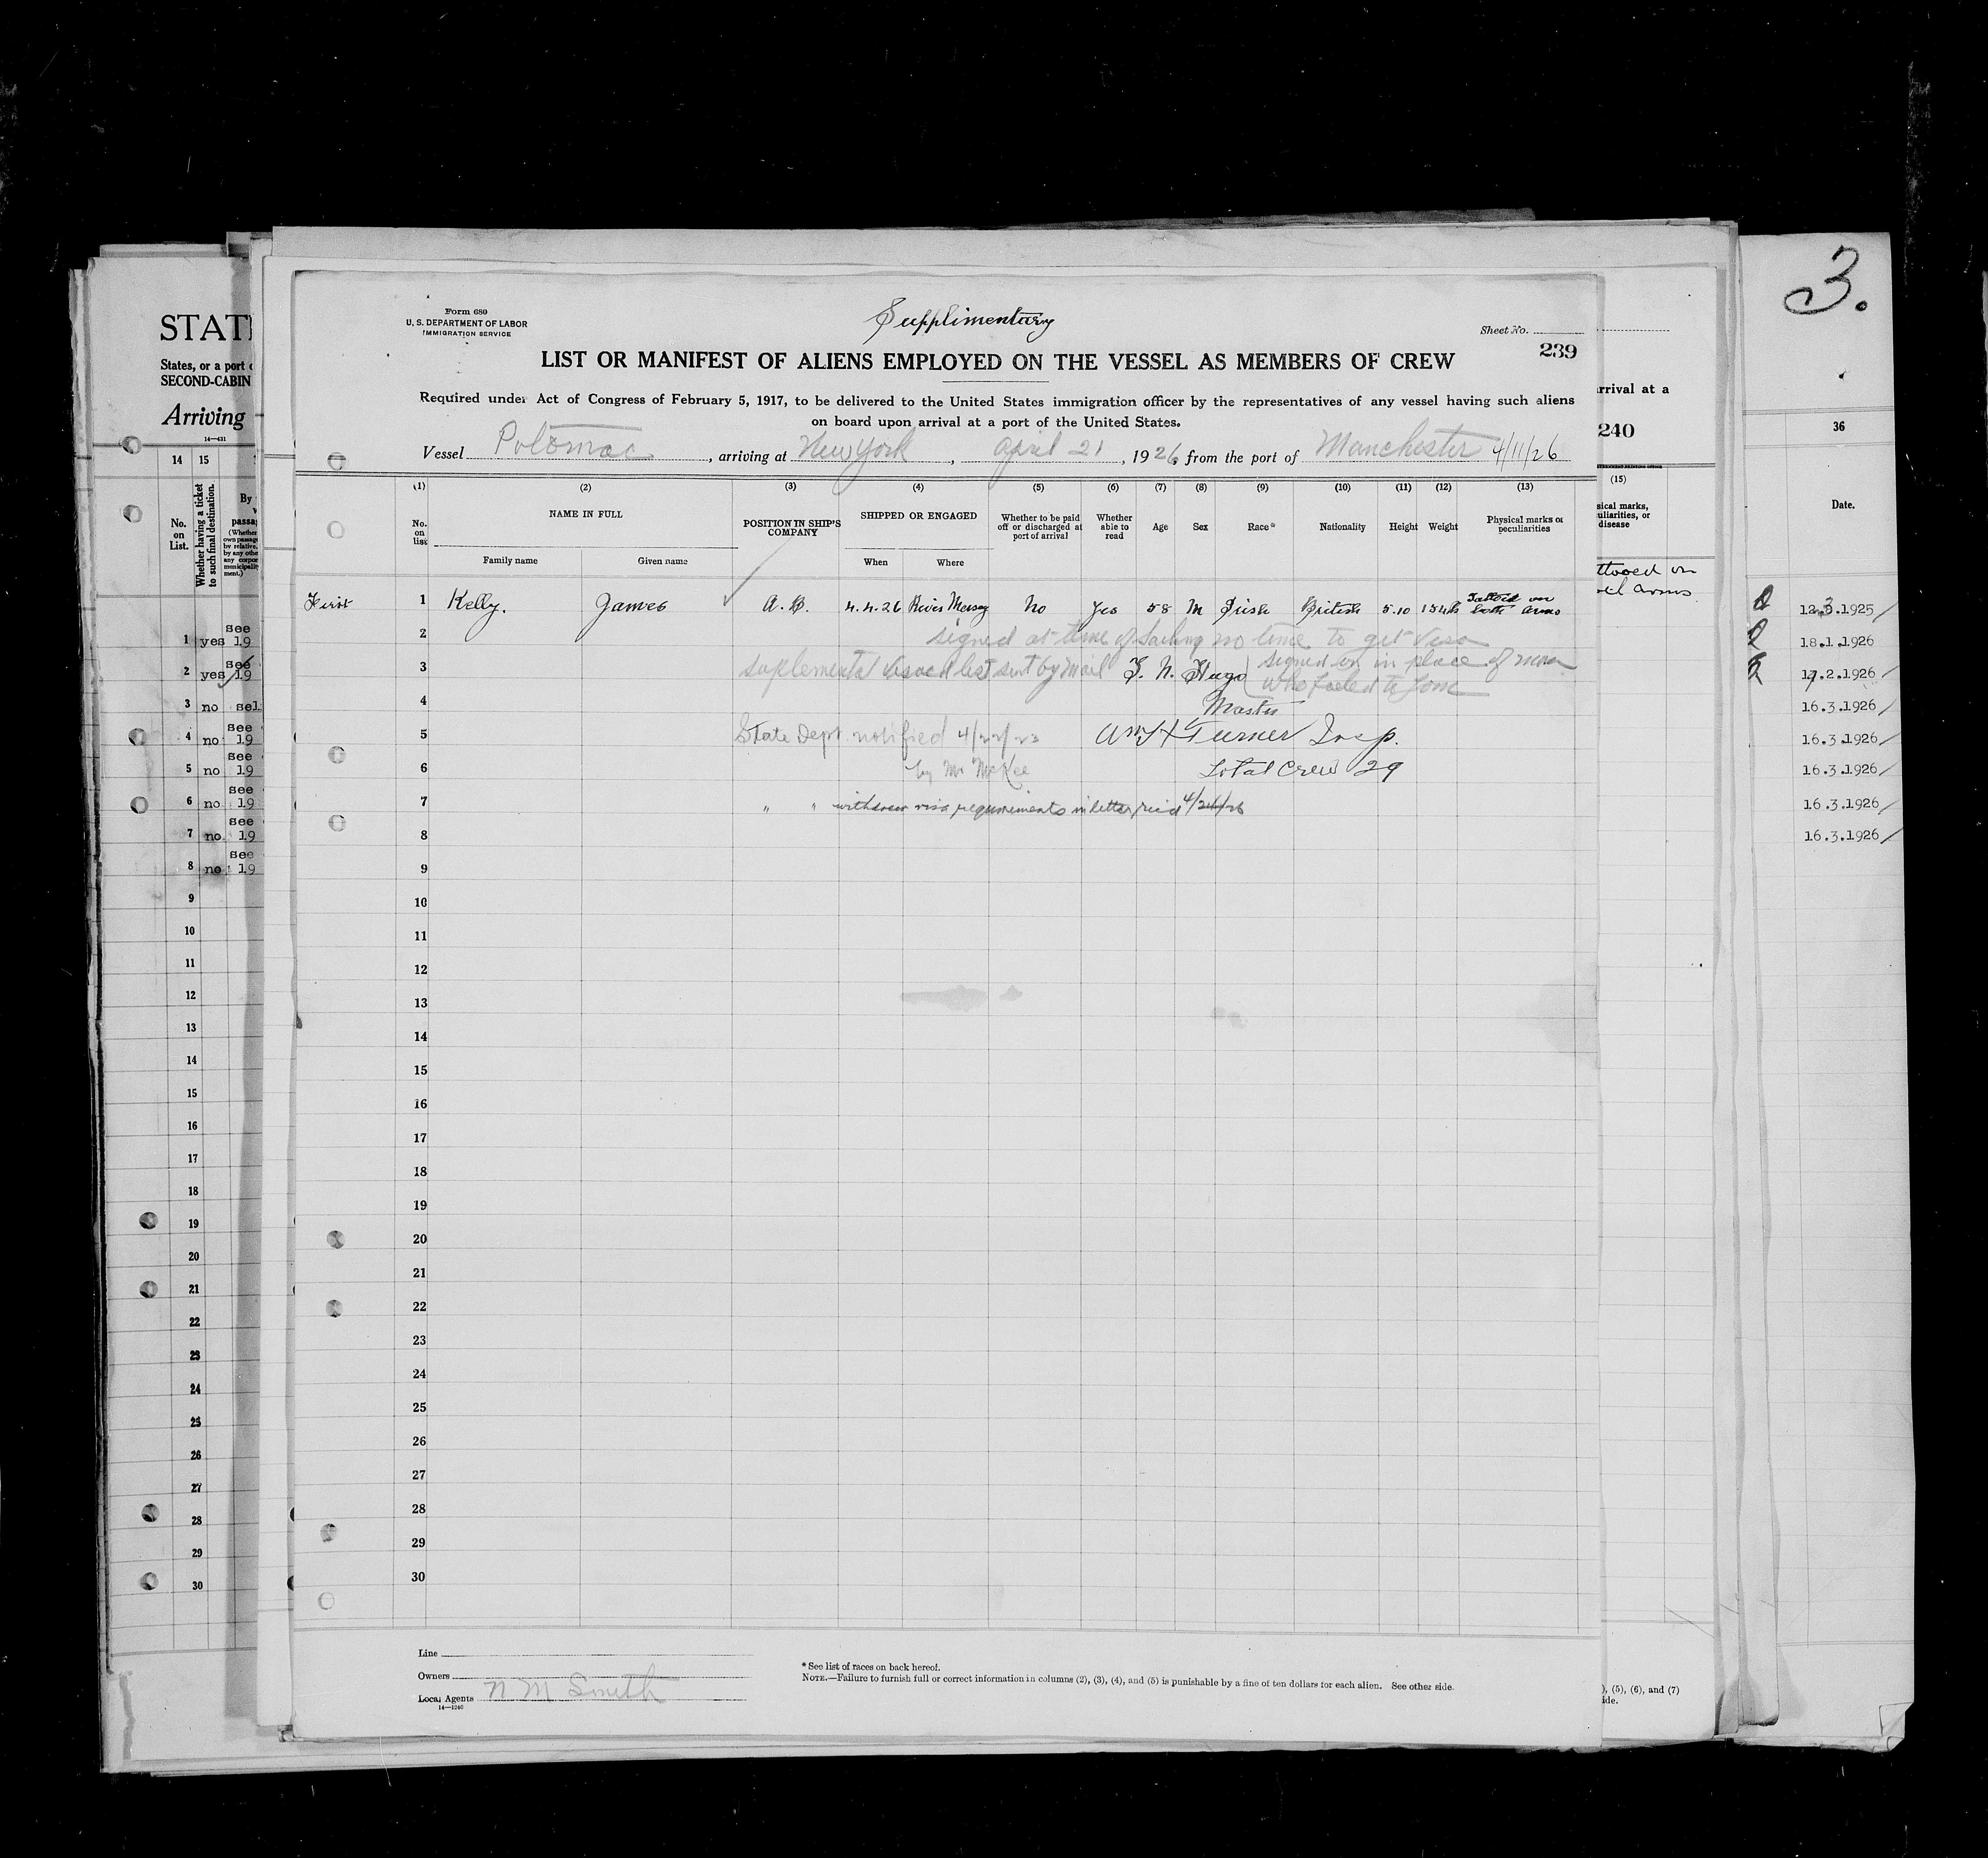 Form 680
U. S. DEPARTMENT OF LABOR
IMMIGRATION SERVICE
Supplimentary
Sheet No.
239
LIST OR MANIFEST OF ALIENS EMPLOYED ON THE VESSEL AS MEMBERS OF CREW
Required under Act of Congress of February 5, 1917, to be delivered to the United States immigration officer by the representatives of any vessel having such aliens
on board upon arrival at a port of the United States.
Vessel Potomac, arriving at New York, April 21, 1926, from the port of Manchester 4/11/26
(1) (2) (3) (4) (5) (6) (7) (8) (9) (10) (11) (12) (13)
No. on list
NAME IN FULL
Family name Given name
POSITION IN SHIP'S COMPANY
SHIPPED OR ENGAGED
When Where
Whether to be paid off or discharged at port of arrival
Whether able to read
Age
Sex
Race*
Nationality
Height
Weight
Physical marks or peculiarities
First 1 Kelly. James A.B. 4.4.26 River Mersey No Yes 58 M Irish British 5.10 Tattoed on both arms
2 signed at time of Sailing no time to get Visa
3 suplemental visaed list sent by mail signed on in place of man
who failed to Join
4 Master
5 State Dept. notified Wm H Turner Insp.
6 by Mr McKee Total Crew 29
7 " " visa requirements in letter
8
9
10
11
12
13
14
15
16
17
18
19
20
21
22
23
24
25
26
27
28
29
30
Line
Owners
Local Agents N M Smith
14—1240
* See list of races on back hereof.
NOTE.—Failure to furnish full or correct information in columns (2), (3), (4), and (5) is punishable by a fine of ten dollars for each alien. See other side.
STAT
States, or a port
SECOND-CABIN
Arriving
14—431
14 15
No. on List.
Whether having a ticket to such final destination.
By
1 yes see 19
2 yes see 19
3 no sel
4 no see 19
5 no see 19
6 no see 19
7 no see 19
8 no see 19
9
10
11
12
13
14
15
16
17
18
19
20
21
22
23
24
25
26
27
28
29
30
arrival at a
240
(15)
disease
arms
), (5), (6), and (7)
ide.
3.
36
Date.
12.3.1925
18.1.1926
17.2.1926
16.3.1926
16.3.1926
16.3.1926
16.3.1926
16.3.1926